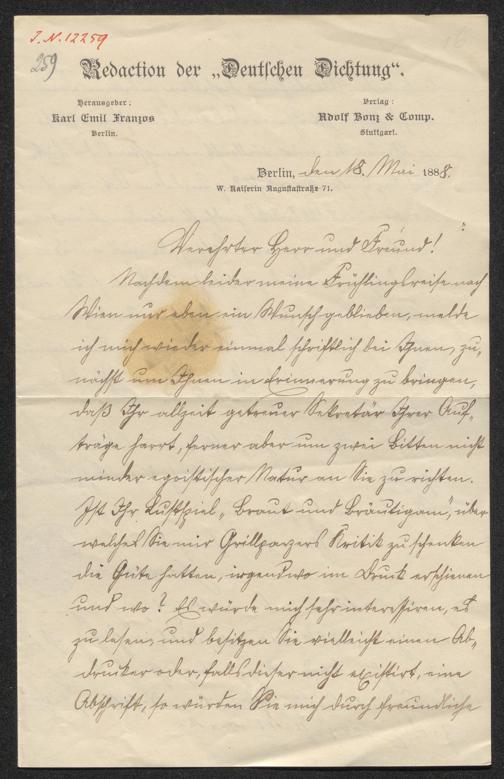 J.N. 12259
259
Redaction der „Deutschen Dichtung“.
Herausgeber:
Karl Emil Franzos
Berlin.
Verlag:
Adolf Bonz & Comp.
Stuttgart.
Berlin, den 18. Mai 1888.
W. Kaiserin Augustastraße 71.
Verehrter Herr und Freund!
Nachdem leider meine Frühlingsreise nach
Wien nur eben ein Wunsch geblieben, melde
ich mich wieder einmal schriftlich bei Ihnen, zu-
nächst um Ihnen in Erinnerung zu bringen,
daß Ihr allzeit getreuer Sekretär Ihrer Auf-
träge harrt, ferner aber um zwei Bitten nicht
minder egoistischer Natur an Sie zu richten.
Ist Ihr Lustspiel „Braut und Bräutigam“, über
welches Sie mir Grillparzers Kritik zu schenken
die Güte hatten, irgendwo im Druck erschienen
und wo? Es würde mich sehr interessiren, es
zu lesen, und besitzen Sie vielleicht einen Ab-
drucker oder, falls dieser nicht existirt, eine
Abschrift, so würden Sie mich durch freundliche